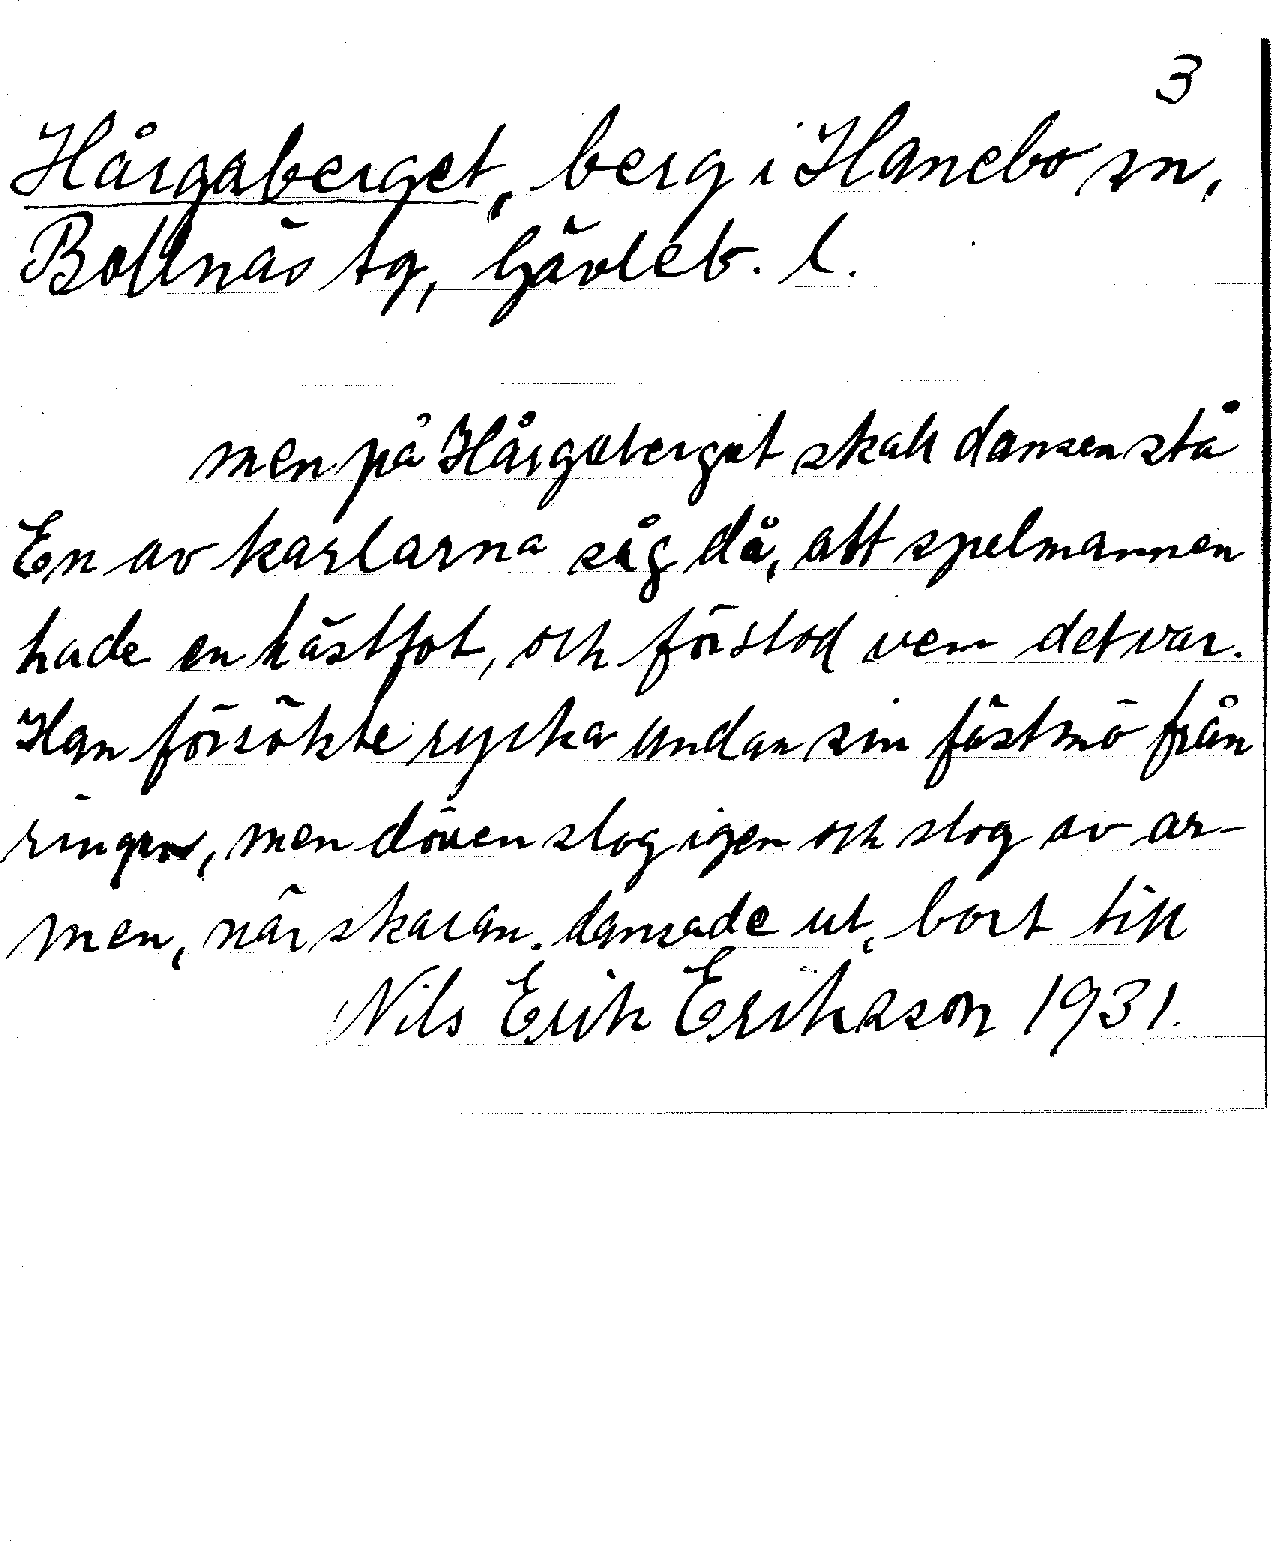 3
Hårgaberget, berg i Hanebo sn,
Bollnäs tg, Gävleb. l.
men på Hårgaberget skall dansen stå
En av karlarna såg då, att spelmannen
hade en hästfot, och förstod vem det var.
Han försökte rycka undan sin fästmö från
ringen, men dören slog igen och slog av ar-
men, när skaran dansade ut, bort till
Nils Erik Eriksson 1931.